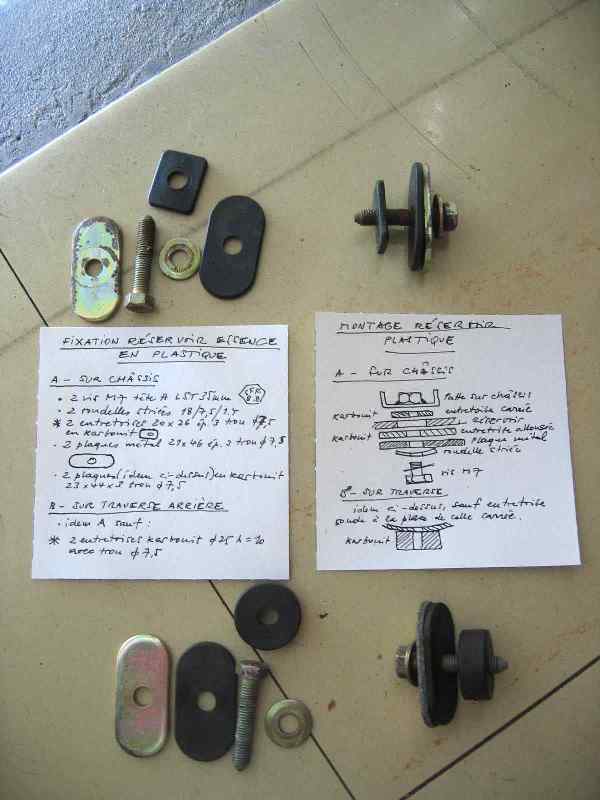 FIXATION RÉSERVOIR ESSENCE
EN PLASTIQUE
A - SUR CHÂSSIS
• 2 vis M7 tête H LST 55mm
B.B
• 2 rondelles striées 18/7,5/1,4
* 2 entretoises 20x26 ép. 3 trou ϕ7,5
en karbonit
• 2 plaques métal 23x46 ép. 3 trou ϕ7,5
• 2 plaques (idem ci-dessus) en karbonit
23x44x3 trou ϕ7,5
B - SUR TRAVERSE ARRIÈRE
• idem A sauf :
* 2 entretoises karbonit ϕ25 h=10
avec trou ϕ7,5
MONTAGE RÉSERVOIR
PLASTIQUE
A - SUR CHÂSSIS
Patte sur châssis
karbonit entretoise carrée
réservoir
karbonit entretoise allongée
plaque métal
rondelle striée
vis M7
B - SUR TRAVERSE
idem ci-dessus, sauf entretoise
ronde à la place de celle carrée.
karbonit